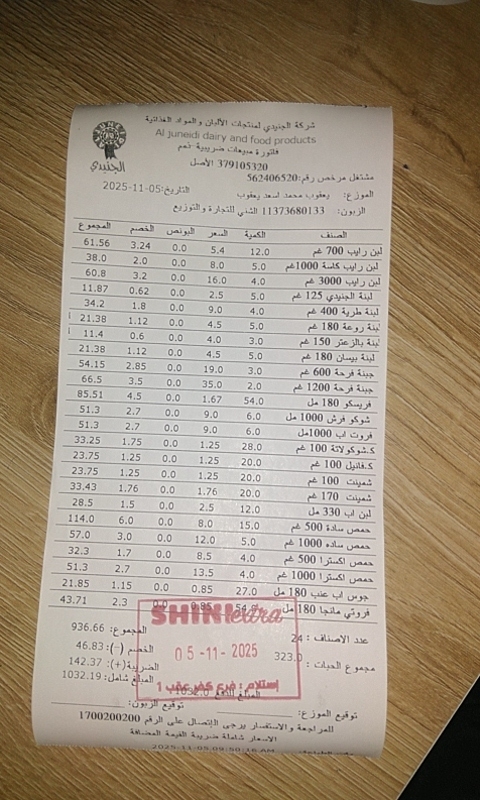 شركة الجنيدي لمنتجات الألبان والمواد الغذائية
Al juneidi dairy and food products
فاتورة مبيعات ضريبية ذمم
379105320 الأصل
الجنيدي
مشتغل مرخص رقم:562406520
التاريخ:05-11-2025
الموزع: يعقوب محمد اسعد يعقوب
الزبون: 11373680133 الشني للتجارة والتوزيع
الصنف الكمية السعر البونص الخصم المجموع
لبن رايب 700 غم 12.0 5.4 0.0 3.24 61.56
لبن رايب كاسة 1000غم 5.0 8.0 0.0 2.0 38.0
لبن رايب 3000 غم 4.0 16.0 0.0 3.2 60.8
لبنة الجنيدي 125 غم 5.0 2.5 0.0 0.62 11.87
لبنة طرية 400 غم 4.0 9.0 0.0 1.8 34.2
لبنة روعة 180 غم 5.0 4.5 0.0 1.12 21.38
لبنة بالزعتر 150 غم 4.0 3.0 0.0 0.6 11.4
لبنة بيسان 180 غم 5.0 4.5 0.0 1.12 21.38
جبنة فرحة 600 غم 3.0 19.0 0.0 2.85 54.15
جبنة فرحة 1200 غم 2.0 35.0 0.0 3.5 66.5
فريسكو 180 مل 54.0 1.67 0.0 4.5 85.51
شوكو فرش 1000 مل 6.0 9.0 0.0 2.7 51.3
فروت اب 1000مل 6.0 9.0 0.0 2.7 51.3
ك.شوكولاتة 100 غم 28.0 1.25 0.0 1.75 33.25
ك.فانيل 100 غم 20.0 1.25 0.0 1.25 23.75
شمينت 100 غم 20.0 1.25 0.0 1.25 23.75
شمينت 170 غم 20.0 1.76 0.0 1.76 33.43
لبن اب 330 مل 12.0 2.5 0.0 1.5 28.5
حمص سادة 500 غم 15.0 8.0 0.0 6.0 114.0
حمص سادة 1000 غم 5.0 12.0 0.0 3.0 57.0
حمص اكسترا 500 غم 4.0 8.5 0.0 1.7 32.3
حمص اكسترا 1000 غم 4.0 13.5 0.0 2.7 51.3
جوس اب عنب 180 مل 27.0 0.85 0.0 1.15 21.85
فروتي مانجا 180 مل 54.0 0.85 0.0 2.3 43.71
SHINI extra
05-11-2025
إستلام : فرع كفر عقب 1
عدد الاصناف : 24
مجموع الحبات : 323.0
المجموع: 936.66
الخصم (-): 46.83
الضريبة(+): 142.37
المبلغ شامل: 1032.19
توقيع الموزع:
توقيع الزبون:
للمراجعة والاستفسار يرجى الإتصال على الرقم 1700200200
الاسعار شاملة ضريبة القيمة المضافة